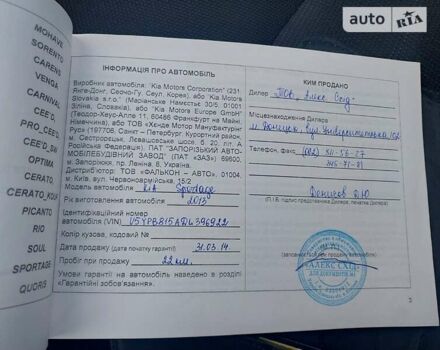 auto RIA
MOHAVE
SORENTO
CARENS
VENGA
CARNIVAL
CEE'D
PRO_CEE'D
CEE'D_SW
OPTIMA
CERATO
CERATO_KOUP
PICANTO
RIO
SOUL
SPORTAGE
QUORIS
ІНФОРМАЦІЯ ПРО АВТОМОБІЛЬ
Виробник автомобіля: "Kia Motors Corporation" (231
Янге-Донг, Сеочо-Гу, Сеул, Корея), або "Kia Motors
Slovakia s.r.o." (Маріанське Намєстнє 30/5, 01001
Зіліна, Словакія), або "Kia Motors Europe GmbH"
(Теодор-Хеус-Аллее 11, 60486 Франкфурт на Майні,
Німеччина), або ТОВ «Хенде Мотор Мануфактурінг
Рус» (197706, Санкт – Петербург, Курортний район,
м. Сестрорецьк, Левашовське шосе, б. 20, літ. А,
Російська Федерація), ПАТ "ЗАПОРІЗЬКИЙ АВТО-
МОБІЛЕБУДІВНИЙ ЗАВОД" (ПАТ «ЗАЗ») 69600,
м. Запоріжжя, пр. Леніна, 8, Україна.
Дистриб'ютор: ТОВ «ФАЛКОН – АВТО», 01004,
м. Київ, вул. Червоноармійська, 15/2
Модель автомобіля KIA Sportage
Рік виготовлення автомобіля 2013
Ідентифікаційний
номер автомобіля U5YPB815ADL396922
Колір кузова, кодовий №
Дата продажу (дата початку гарантії) 31.03.14
Пробіг при продажу 22 км.
Умови гарантії на автомобіль наведено в розділі
«Гарантійні зобов'язання».
КИМ ПРОДАНО
Дилер ТОВ "Алекс Схід"
Місцезнаходження Дилера
м. Донецьк, вул. Університетська
Телефон, факс (062)
Денисов
(П.І.Б. підпис представника Дилера, печатка Дилера)
(заповнюється при продажу автомобіля)
АЛЕКС СХІД
ДЛЯ ДОКУМЕНТІВ
5